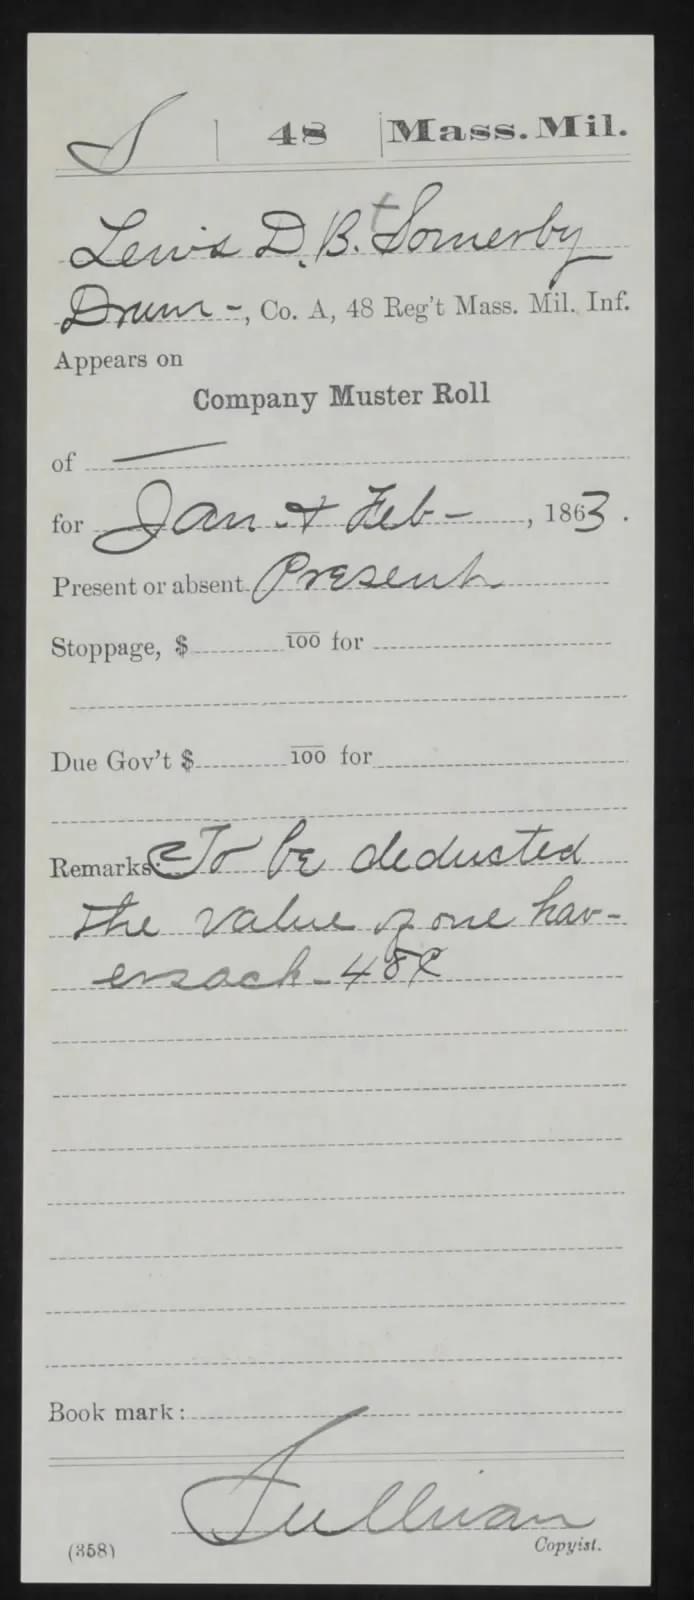 S | 48 | Mass. Mil.
Lewis D. B. Somerby
Drum -, Co. A, 48 Reg't Mass. Mil. Inf.
Appears on
Company Muster Roll
of —
for Jan. & Feb -, 1863.
Present or absent Present
Stoppage, $ 100 for
Due Gov't $ 100 for
Remarks: To be deducted
the value of one hav-
ersack - 48¢
Book mark:
Sullivan
(358) Copyist.